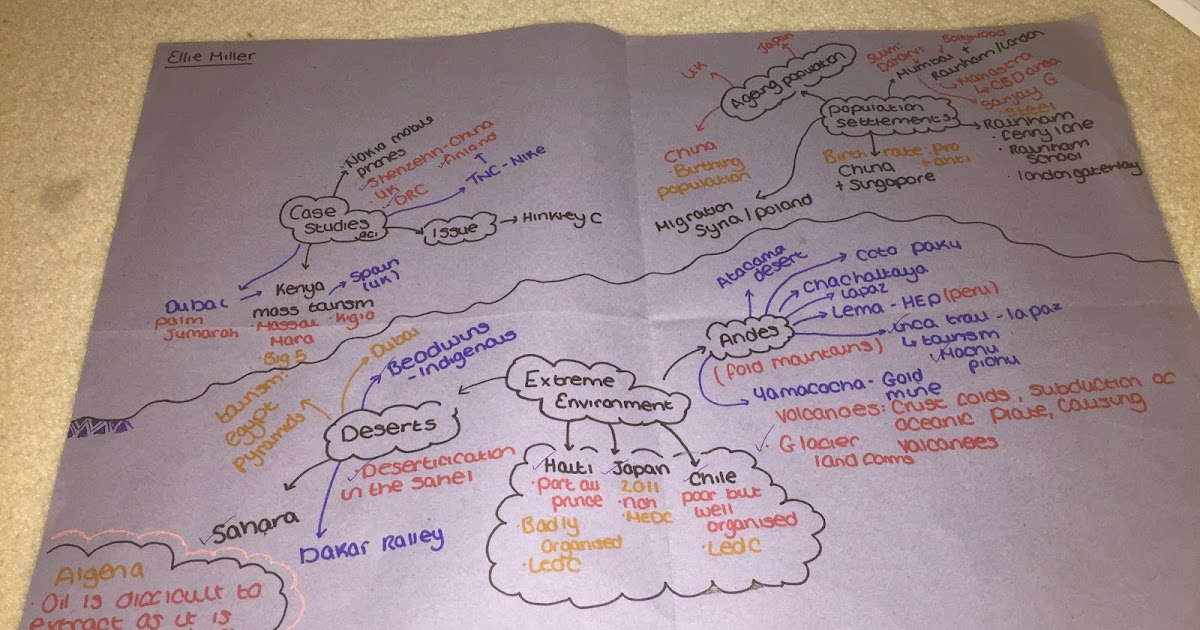 Ellie Miller
Nokia mobile
phones
Shenzehn-China
Finland
UK
DRC
TNC-Nike
Case
Studies
Issue
Hinkley C
Dubai
palm
Jumarah
Kenya
mass tourism
Massai
Mara
Big 5
Spain
(UK)
Ageing population
UK
Japan
China
Birthing
population
Population
settlements
slum:
Daravi
Bollywood
Mumbai +
Rainham/London
CBD area
Sanjay
G
steel
Rainham
Ferry lane
Rainham
School
london gateway
Birth rate: pro
+ anti
China
+ Singapore
Migration
Syria/poland
Extreme
Environment
Andes
(fold mountains)
Atacama
desert
Coto paxu
Chachaltaya
Lapaz
Lema - HEP (peru)
inca trail - la paz
tourism
Machu
pichu
Yanacocha - Gold
mine
Volcanoes: Crust folds, subduction of
oceanic plate, causing
volcanoes
Glacier
land forms
Deserts
Dubai
Beadwins
-indigenous
tourism:
egypt
pyramids
Desertification
in the sahel
Sahara
Dakar Ralley
Haiti
port au
prince
Badly
organised
Ledc
Japan
2011
MEDC
Chile
poor but
well
organised
Ledc
Algeria
Oil is difficult to
extract as it is